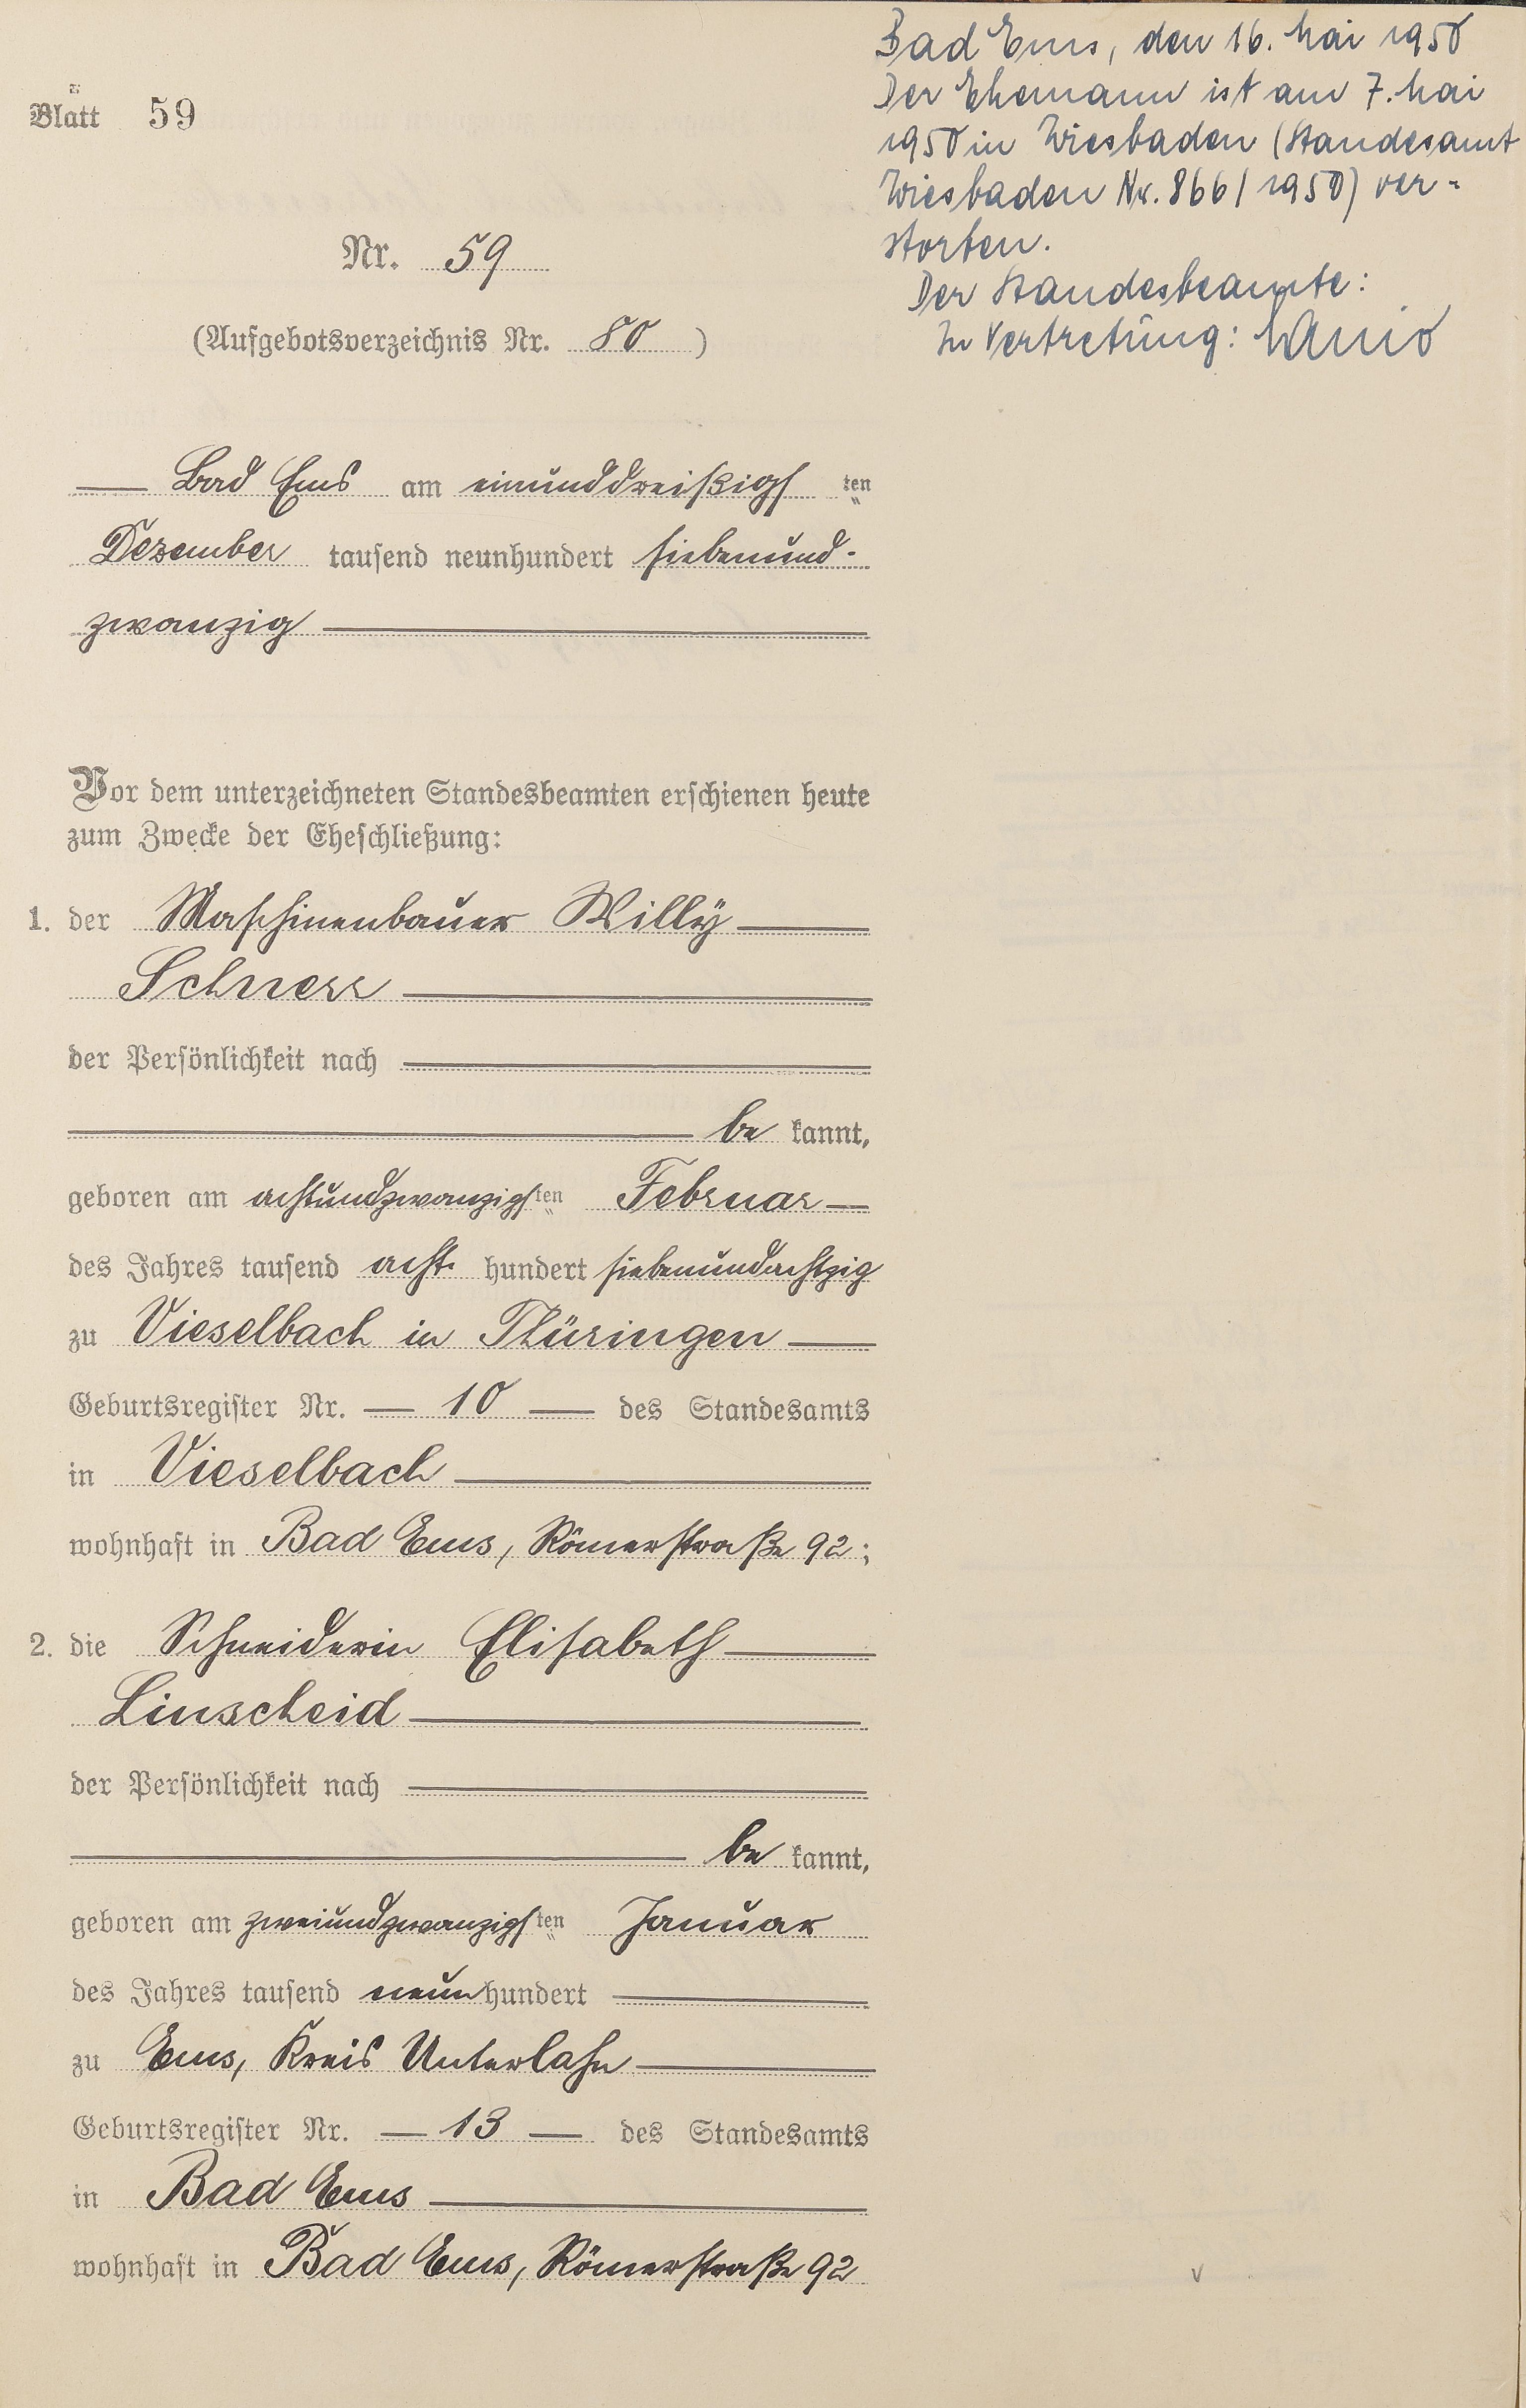 Blatt 59
Bad Ems, den 16. Mai 1950
Der Ehemann ist am 7. Mai
1950 in Wiesbaden (Standesamt
Wiesbaden Nr. 866/1950) ver-
storben.
Der Standesbeamte:
In Vertretung:
Nr. 59
(Aufgebotsverzeichnis Nr. 80)
Bad Ems am einunddreißigsten
Dezember tausend neunhundert siebenund-
zwanzig
Vor dem unterzeichneten Standesbeamten erschienen heute
zum Zwecke der Eheschließung:
1. der Maschinenbauer Willy
Schnerr
der Persönlichkeit nach
be kannt,
geboren am achtundzwanzigsten Februar
des Jahres tausend acht hundert siebenundachtzig
zu Vieselbach in Thüringen
Geburtsregister Nr. 10 des Standesamts
in Vieselbach
wohnhaft in Bad Ems, Römerstraße 92;
2. die Schneiderin Elisabeth
Linscheid
der Persönlichkeit nach
be kannt,
geboren am zweiundzwanzigsten Januar
des Jahres tausend neun hundert
zu Ems, Kreis Unterlahn
Geburtsregister Nr. 13 des Standesamts
in Bad Ems
wohnhaft in Bad Ems, Römerstraße 92